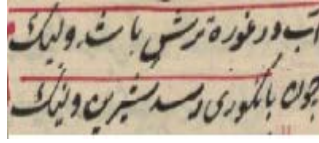 آب در غوره ترش باشد ولیک
چون بانگوری رسد شیرین و نیک